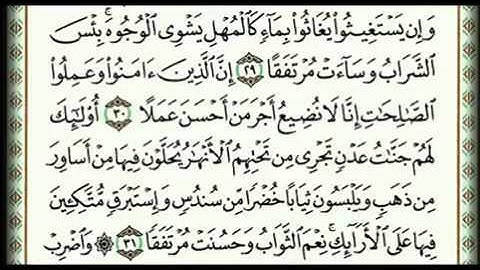 وَإِن يَسْتَغِيثُواْ يُغَاثُواْ بِمَآءٖ كَٱلۡمُهۡلِ يَشۡوِي ٱلۡوُجُوهَۚ بِئۡسَ
ٱلشَّرَابُ وَسَآءَتۡ مُرۡتَفَقًا ٢٩ إِنَّ ٱلَّذِينَ ءَامَنُواْ وَعَمِلُواْ
ٱلصَّٰلِحَٰتِ إِنَّا لَا نُضِيعُ أَجۡرَ مَنۡ أَحۡسَنَ عَمَلًا ٣٠ أُوْلَٰٓئِكَ
لَهُمۡ جَنَّٰتُ عَدۡنٖ تَجۡرِي مِن تَحۡتِهِمُ ٱلۡأَنۡهَٰرُ يُحَلَّوۡنَ فِيهَا مِنۡ أَسَاوِرَ
مِن ذَهَبٖ وَيَلۡبَسُونَ ثِيَابًا خُضۡرٗا مِّن سُندُسٖ وَإِسۡتَبۡرَقٖ مُّتَّكِـِٔينَ
فِيهَا عَلَى ٱلۡأَرَآئِكِۚ نِعۡمَ ٱلثَّوَابُ وَحَسُنَتۡ مُرۡتَفَقٗا ٣١ ۞ وَٱضۡرِبۡ